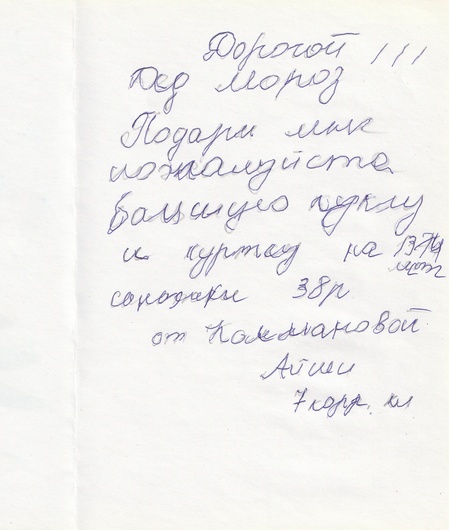 Дорогой !!!
Дед Мороз
Подари мне
пожалуйста
большую куклу
и куртку на 13-14
лет
сапожки 38р
от Коммановой
Айши
7 корр. кл